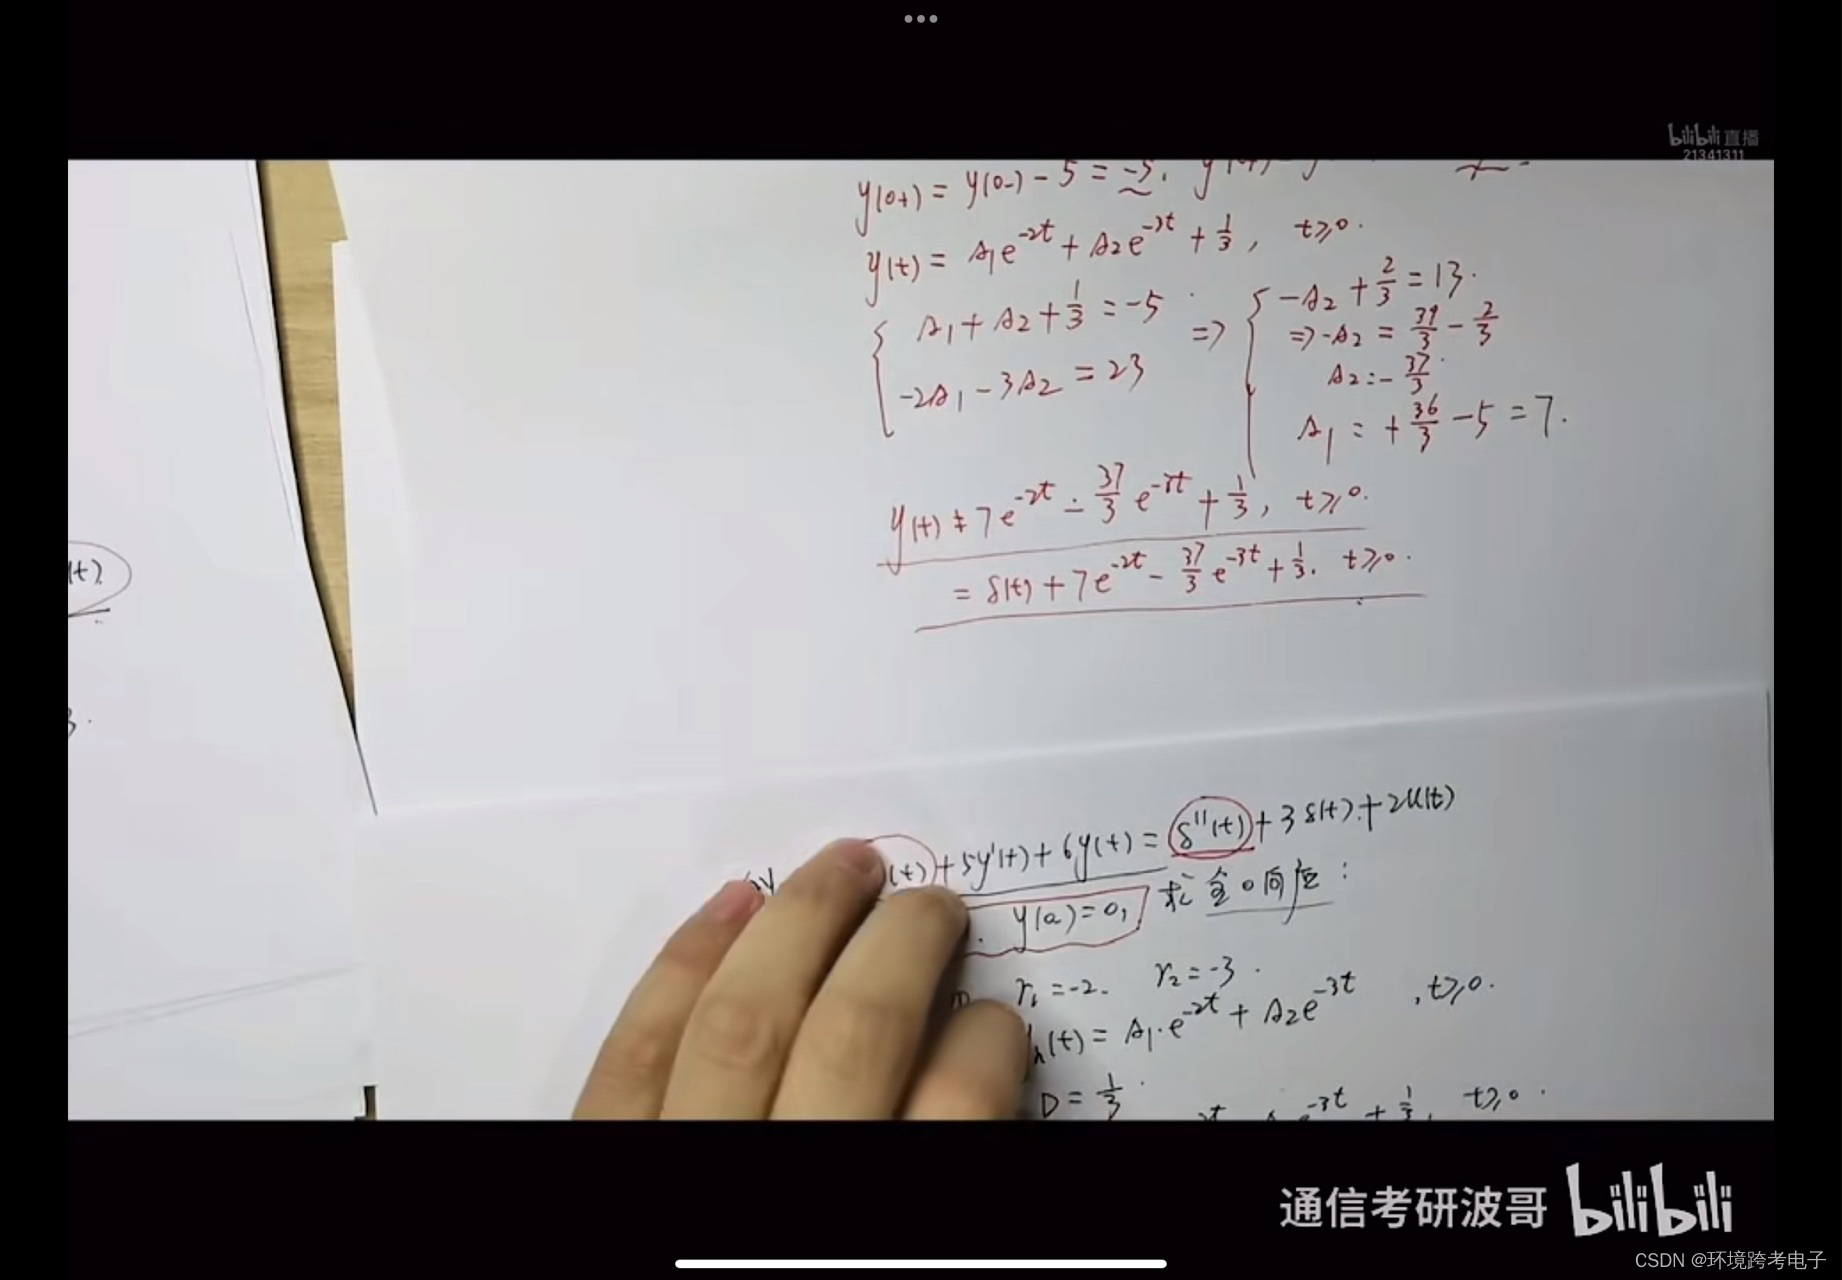 bilibili 直播
21341311
y(0+) = y(0-) - 5 = -5.
y(t) = A₁e^{-2t} + A₂e^{-3t} + 1/3, t≥0.
{ A₁ + A₂ + 1/3 = -5
-2A₁ - 3A₂ = 23
=> { -A₂ + 2/3 = 13.
=> -A₂ = 39/3 - 2/3
A₂ = - 37/3
A₁ = + 36/3 - 5 = 7.
y(t) ≠ 7e^{-2t} - 37/3 e^{-3t} + 1/3, t≥0.
= δ(t) + 7e^{-2t} - 37/3 e^{-3t} + 1/3. t≥0.
(t)
3.
(t) + 5y'(t) + 6y(t) = δ''(t) + 3δ(t) + 2u(t)
y(0-) = 0, 求全响应:
r₁ = -2. r₂ = -3.
h(t) = A₁·e^{-2t} + A₂e^{-3t}, t≥0.
D = 1/3.
e^{-3t} + 1/3, t≥0.
通信考研波哥 bilibili
CSDN @环境跨考电子